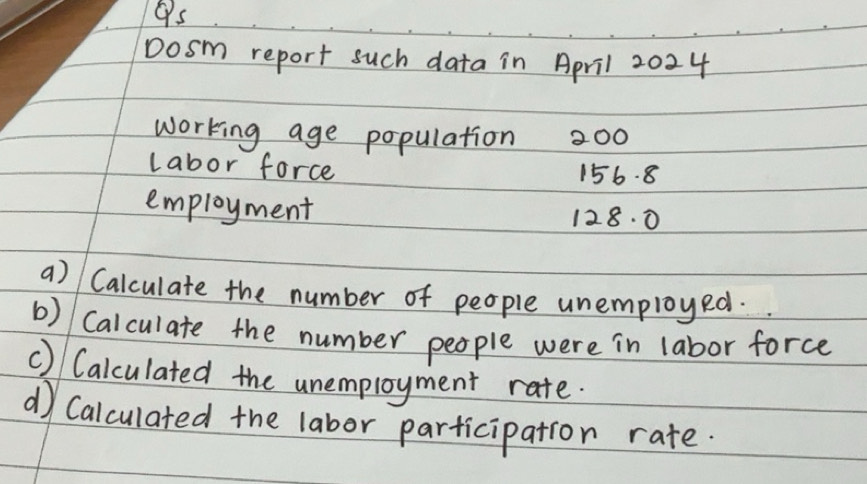 Qs
DOSM report such data in April 2024
Working age population 200
Labor force 156.8
employment 128.0
a) Calculate the number of people unemployed.
b) Calculate the number people were in labor force
c) Calculated the unemployment rate.
d) Calculated the labor participation rate.